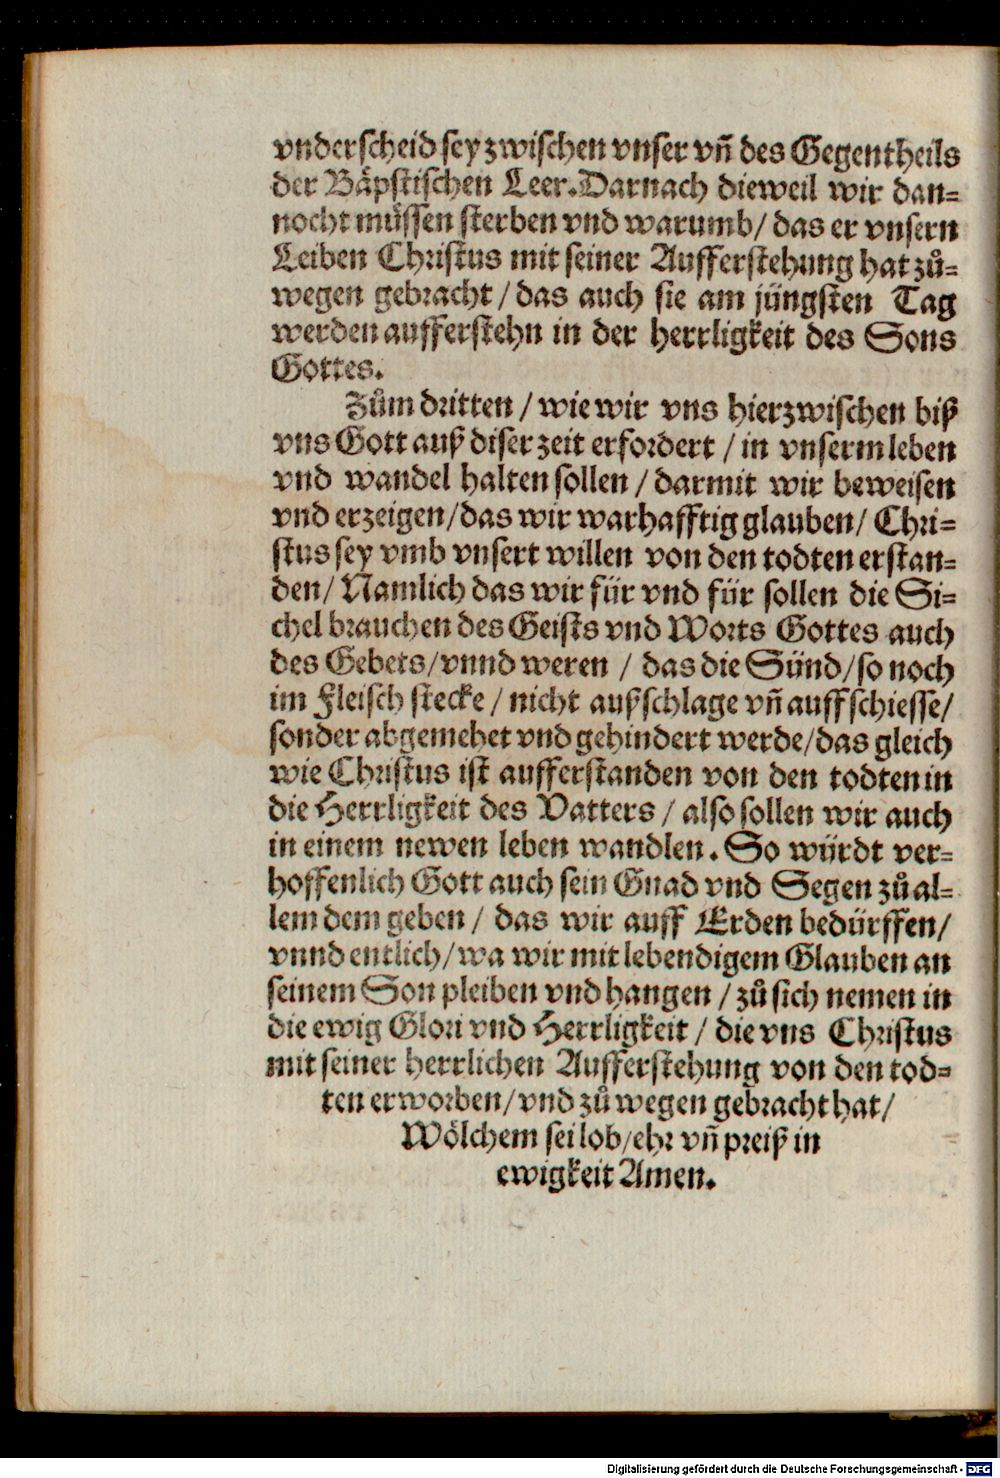 vnderscheid sey zwischen vnser vñ des Gegentheils
der Bäpstischen Leer. Darnach dieweil wir dan=
nocht müssen sterben vnd warumb / das er vnsern
Leiben Christus mit seiner Aufferstehung hat zů=
wegen gebracht / das auch sie am jüngsten Tag
werden aufferstehn in der herrligkeit des Sons
Gottes.
Zům dritten / wie wir vns hierzwischen biß
vns Gott auß diser zeit erfordert / in vnserm leben
vnd wandel halten sollen / darmit wir beweisen
vnd erzeigen / das wir warhafftig glauben / Chri=
stus sey vmb vnsert willen von den todten erstan=
den / Namlich das wir für vnd für sollen die Si=
chel brauchen des Geists vnd Worts Gottes auch
des Gebets / vnnd weren / das die Sünd / so noch
im Fleisch stecke / nicht außschlage vñ auffschiesse /
sonder abgemehet vnd gehindert werde / das gleich
wie Christus ist aufferstanden von den todten in
die Herrligkeit des Vatters / also sollen wir auch
in einem newen leben wandlen. So würdt ver=
hoffenlich Gott auch sein Gnad vnd Segen zů al=
lem dem geben / das wir auff Erden bedürffen /
vnnd entlich / wa wir mit lebendigem Glauben an
seinem Son pleiben vnd hangen / zů sich nemen in
die ewig Glori vnd Herrligkeit / die vns Christus
mit seiner herrlichen Aufferstehung von den tod=
ten erworben / vnd zů wegen gebracht hat /
Wölchem sei lob / ehr vñ preiß in
ewigkeit Amen.
Digitalisierung gefördert durch die Deutsche Forschungsgemeinschaft - DFG